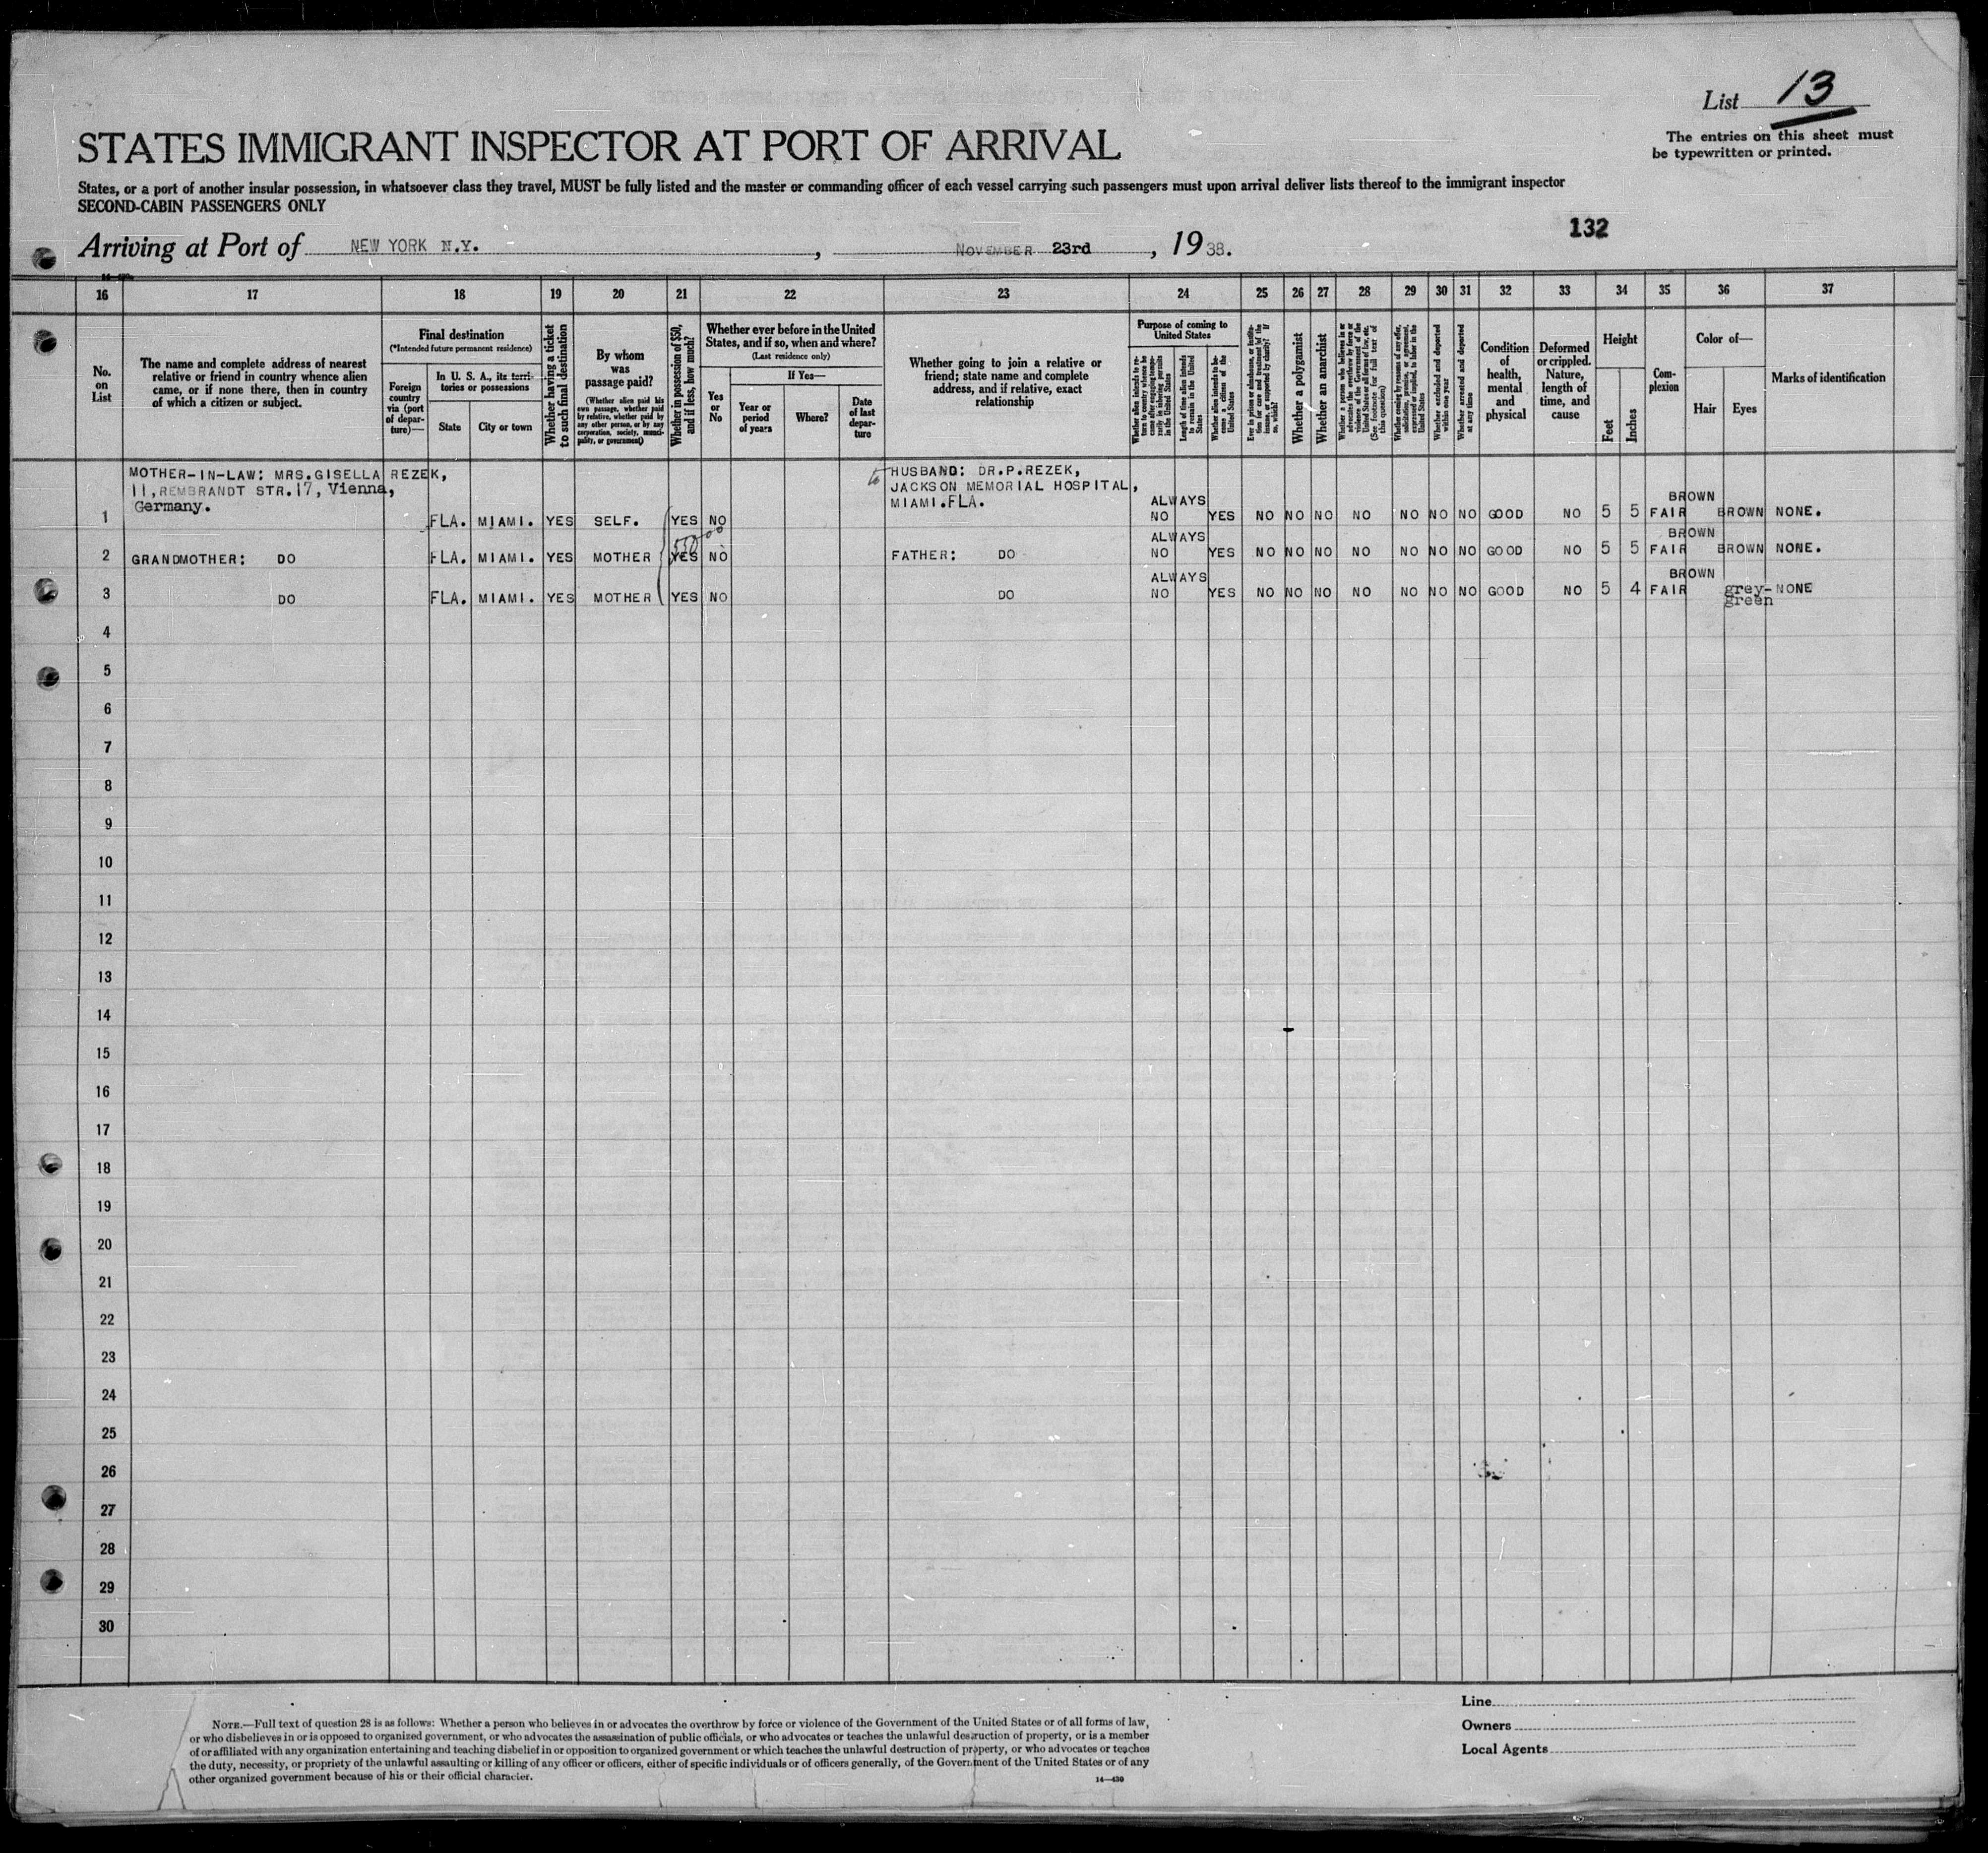 List 13
The entries on this sheet must
be typewritten or printed.
STATES IMMIGRANT INSPECTOR AT PORT OF ARRIVAL
States, or a port of another insular possession, in whatsoever class they travel, MUST be fully listed and the master or commanding officer of each vessel carrying such passengers must upon arrival deliver lists thereof to the immigrant inspector
SECOND-CABIN PASSENGERS ONLY
132
Arriving at Port of NEW YORK N.Y. , NOVEMBER 23rd , 1938.
16 17 18 19 20 21 22 23 24 25 26 27 28 29 30 31 32 33 34 35 36 37
No. on List
The name and complete address of nearest
relative or friend in country whence alien
came, or if none there, then in country
of which a citizen or subject.
Final destination
(*Intended future permanent residence)
Foreign country via (port of departure)—
In U. S. A., its territories or possessions
State
City or town
Whether having a ticket to such final destination
By whom was passage paid?
(Whether alien paid his own passage, whether paid by relative, whether paid by any other person, or by any corporation, society, municipality, or government)
Whether in possession of $50, and if less, how much?
Whether ever before in the United States, and if so, when and where?
(Last residence only)
Yes or No
If Yes—
Year or period of years
Where?
Date of last departure
Whether going to join a relative or
friend; state name and complete
address, and if relative, exact
relationship
Purpose of coming to United States
Whether alien intends to return to country whence he came after engaging temporarily in laboring pursuits in the United States
Length of time alien intends to remain in the United States
Whether alien intends to become a citizen of the United States
Ever in prison or almshouse, or institution for care and treatment of the insane, or supported by charity? If so, which?
Whether a polygamist
Whether an anarchist
Whether a person who believes in or advocates the overthrow by force or violence of the Government of the United States or all forms of law, etc. (See footnote for full text of this question)
Whether coming by reason of any offer, solicitation, promise, or agreement, expressed or implied, to labor in the United States
Whether excluded and deported within one year
Whether arrested and deported at any time
Condition of health, mental and physical
Deformed or crippled. Nature, length of time, and cause
Height
Feet
Inches
Complexion
Color of—
Hair
Eyes
Marks of identification
MOTHER-IN-LAW: MRS.GISELLA REZEK,
11,REMBRANDT STR.17, Vienna,
Germany.
to HUSBAND: DR.P.REZEK,
JACKSON MEMORIAL HOSPITAL,
MIAMI.FLA.
ALWAYS BROWN
1 FLA. MIAMI. YES SELF. YES NO NO YES NO NO NO NO NO NO NO GOOD NO 5 5 FAIR BROWN NONE.
ALWAYS BROWN
2 GRANDMOTHER: DO FLA. MIAMI. YES MOTHER YES NO FATHER: DO NO YES NO NO NO NO NO NO NO GOOD NO 5 5 FAIR BROWN NONE.
ALWAYS BROWN
3 DO FLA. MIAMI. YES MOTHER YES NO DO NO YES NO NO NO NO NO NO NO GOOD NO 5 4 FAIR grey- NONE
green
4
5
6
7
8
9
10
11
12
13
14
15
16
17
18
19
20
21
22
23
24
25
26
27
28
29
30
NOTE.—Full text of question 28 is as follows: Whether a person who believes in or advocates the overthrow by force or violence of the Government of the United States or of all forms of law,
or who disbelieves in or is opposed to organized government, or who advocates the assassination of public officials, or who advocates or teaches the unlawful destruction of property, or is a member
of or affiliated with any organization entertaining and teaching disbelief in or opposition to organized government or which teaches the unlawful destruction of property, or who advocates or teaches
the duty, necessity, or propriety of the unlawful assaulting or killing of any officer or officers, either of specific individuals or of officers generally, of the Government of the United States or of any
other organized government because of his or their official character.
14—430
Line
Owners
Local Agents